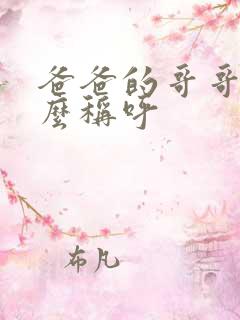 爸爸的哥哥
麼稱呼
布凡